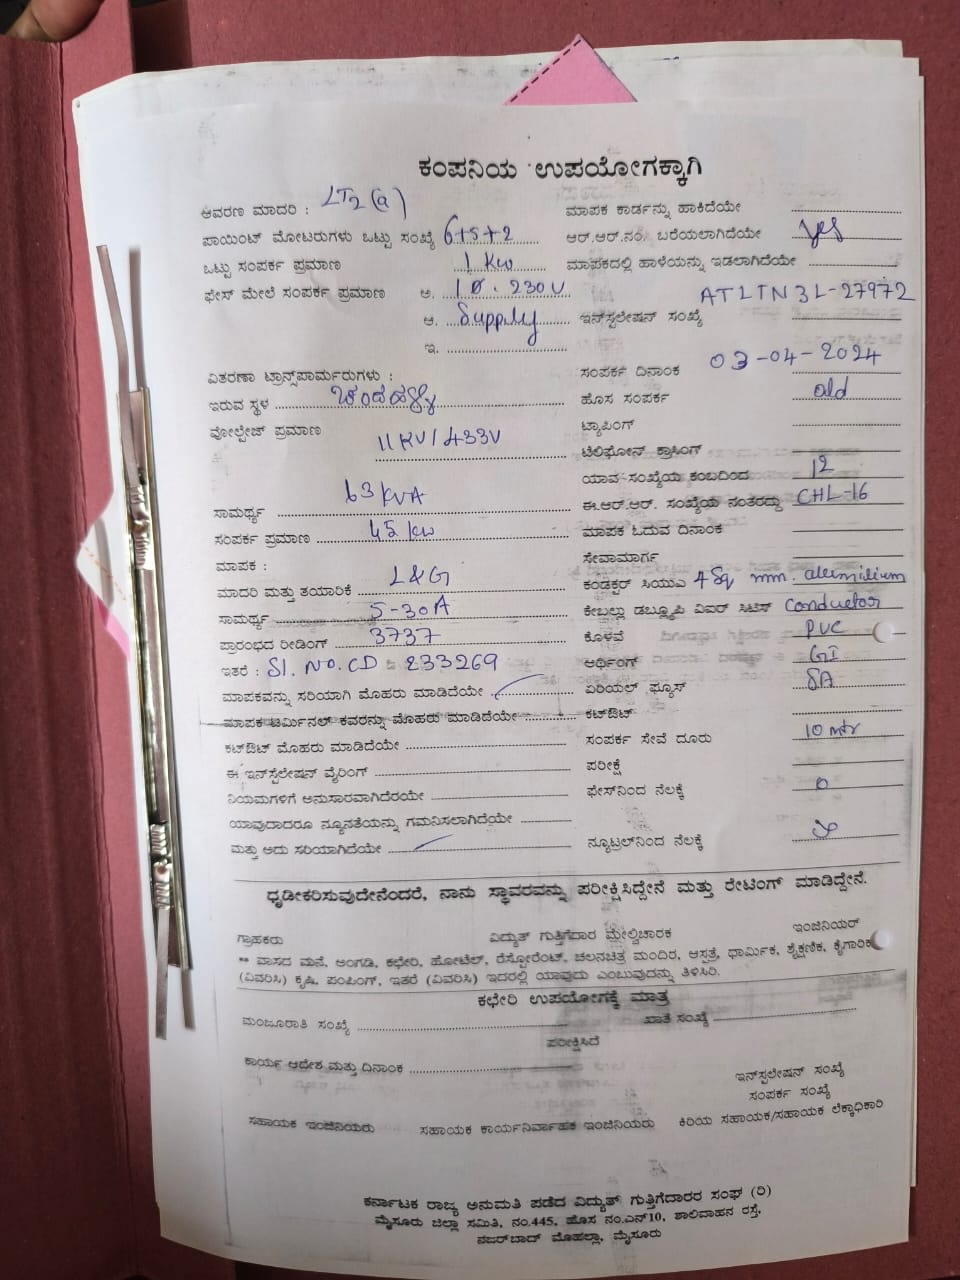 ಕಂಪನಿಯ ಉಪಯೋಗಕ್ಕಾಗಿ
ಆವರಣ ಮಾದರಿ : LT2 (a) ಮಾಪಕ ಕಾರ್ಡನ್ನು ಹಾಕಿದೆಯೇ
ಪಾಯಿಂಟ್ ಮೋಟರುಗಳು ಒಟ್ಟು ಸಂಖ್ಯೆ 6+5+2 ಆರ್.ಆರ್.ನಂ. ಬರೆಯಲಾಗಿದೆಯೇ yes
ಒಟ್ಟು ಸಂಪರ್ಕ ಪ್ರಮಾಣ 1 KW ಮಾಪಕದಲ್ಲಿ ಹಾಳೆಯನ್ನು ಇಡಲಾಗಿದೆಯೇ
ಫೇಸ್ ಮೇಲೆ ಸಂಪರ್ಕ ಪ್ರಮಾಣ ಅ. 1 Ø. 230V
ಆ. Supply ಇನ್‌ಸ್ಟಲೇಷನ್ ಸಂಖ್ಯೆ AT1TN3L-27972
ಇ.
ವಿತರಣಾ ಟ್ರಾನ್ಸ್‌ಪಾರ್ಮರುಗಳು : ಸಂಪರ್ಕ ದಿನಾಂಕ 03-04-2024
ಇರುವ ಸ್ಥಳ ಚಂದಹಳ್ಳಿ ಹೊಸ ಸಂಪರ್ಕ old
ವೋಲ್ಟೇಜ್ ಪ್ರಮಾಣ 11KV/433V ಟ್ಯಾಪಿಂಗ್
ಟೆಲಿಫೋನ್ ಕ್ರಾಸಿಂಗ್
ಯಾವ ಸಂಖ್ಯೆಯ ಕಂಬದಿಂದ 12
ಸಾಮರ್ಥ್ಯ 63 KVA ಈ.ಆರ್.ಆರ್. ಸಂಖ್ಯೆಯ ನಂತರದ್ದು CHL-16
ಸಂಪರ್ಕ ಪ್ರಮಾಣ 45 KW ಮಾಪಕ ಓದುವ ದಿನಾಂಕ
ಮಾಪಕ : ಸೇವಾಮಾರ್ಗ
ಮಾದರಿ ಮತ್ತು ತಯಾರಿಕೆ L&G ಕಂಡಕ್ಟರ್ ಸಿಯುಎ 4Sq mm. alemilium
ಸಾಮರ್ಥ್ಯ 5-30A ಕೇಬಲ್ಲು ಡಬ್ಲ್ಯೂಪಿ ವಿಐಆರ್ ಸಿಟಿಸ್ conductor
ಪ್ರಾರಂಭದ ರೀಡಿಂಗ್ 3737 ಕೊಳವೆ PVC
ಇತರೆ : Sl. NO. CD 233269 ಅರ್ಥಿಂಗ್ GI
ಮಾಪಕವನ್ನು ಸರಿಯಾಗಿ ಮೊಹರು ಮಾಡಿದೆಯೇ ಏರಿಯಲ್ ಫ್ಯೂಸ್ 5A
ಮಾಪಕ ಟರ್ಮಿನಲ್ ಕವರನ್ನು ಮೊಹರು ಮಾಡಿದೆಯೇ ಕಟ್‌ಔಟ್
ಕಟ್‌ಔಟ್ ಮೊಹರು ಮಾಡಿದೆಯೇ ಸಂಪರ್ಕ ಸೇವೆ ದೂರು 10 mtr
ಈ ಇನ್‌ಸ್ಟಲೇಷನ್ ವೈರಿಂಗ್ ಪರೀಕ್ಷೆ
ನಿಯಮಗಳಿಗೆ ಅನುಸಾರವಾಗಿದೆರೆಯೇ ಫೇಸ್‌ನಿಂದ ನೆಲಕ್ಕೆ 0
ಯಾವುದಾದರೂ ನ್ಯೂನತೆಯನ್ನು ಗಮನಿಸಲಾಗಿದೆಯೇ
ಮತ್ತು ಅದು ಸರಿಯಾಗಿದೆಯೇ ನ್ಯೂಟ್ರಲ್‌ನಿಂದ ನೆಲಕ್ಕೆ
ಧೃಡೀಕರಿಸುವುದೇನೆಂದರೆ, ನಾನು ಸ್ಥಾವರವನ್ನು ಪರೀಕ್ಷಿಸಿದ್ದೇನೆ ಮತ್ತು ರೇಟಿಂಗ್ ಮಾಡಿದ್ದೇನೆ.
ಗ್ರಾಹಕರು ವಿದ್ಯುತ್ ಗುತ್ತಿಗೆದಾರ ಮೇಲ್ವಿಚಾರಕ ಇಂಜಿನಿಯರ್
** ವಾಸದ ಮನೆ, ಅಂಗಡಿ, ಕಛೇರಿ, ಹೋಟೆಲ್, ರೆಸ್ಟೋರೆಂಟ್, ಚಲನಚಿತ್ರ ಮಂದಿರ, ಆಸ್ಪತ್ರೆ, ಧಾರ್ಮಿಕ, ಶೈಕ್ಷಣಿಕ, ಕೈಗಾರಿಕೆ
(ವಿವರಿಸಿ) ಕೃಷಿ, ಪಂಪಿಂಗ್, ಇತರೆ (ವಿವರಿಸಿ) ಇದರಲ್ಲಿ ಯಾವುದು ಎಂಬುವುದನ್ನು ತಿಳಿಸಿರಿ.
ಕಛೇರಿ ಉಪಯೋಗಕ್ಕೆ ಮಾತ್ರ
ಮಂಜೂರಾತಿ ಸಂಖ್ಯೆ ಖಾತೆ ಸಂಖ್ಯೆ
ಪರೀಕ್ಷಿಸಿದೆ
ಕಾರ್ಯ ಆದೇಶ ಮತ್ತು ದಿನಾಂಕ
ಇನ್‌ಸ್ಟಲೇಷನ್ ಸಂಖ್ಯೆ
ಸಂಪರ್ಕ ಸಂಖ್ಯೆ
ಸಹಾಯಕ ಇಂಜಿನಿಯರು ಸಹಾಯಕ ಕಾರ್ಯನಿರ್ವಾಹಕ ಇಂಜಿನಿಯರು ಕಿರಿಯ ಸಹಾಯಕ/ಸಹಾಯಕ ಲೆಕ್ಕಾಧಿಕಾರಿ
ಕರ್ನಾಟಕ ರಾಜ್ಯ ಅನುಮತಿ ಪಡೆದ ವಿದ್ಯುತ್ ಗುತ್ತಿಗೆದಾರರ ಸಂಘ (ರಿ)
ಮೈಸೂರು ಜಿಲ್ಲಾ ಸಮಿತಿ, ನಂ.445, ಹೊಸ ನಂ.ಎನ್10, ಶಾಲಿವಾಹನ ರಸ್ತೆ,
ನಜರ್‌ಬಾದ್ ಮೊಹಲ್ಲಾ, ಮೈಸೂರು